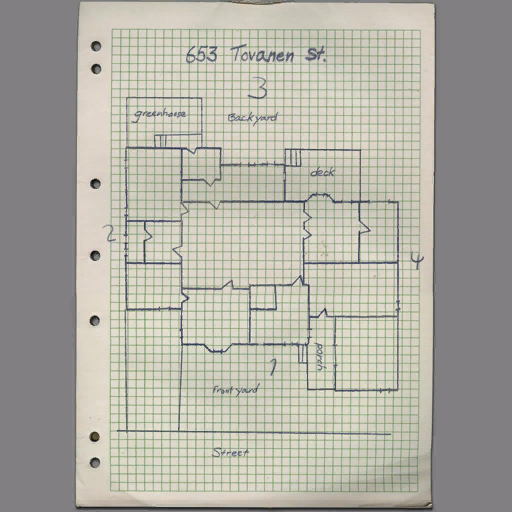 653 Tovanen St.
3
greenhouse
Backyard
deck
2
4
1
porch
Front yard
Street